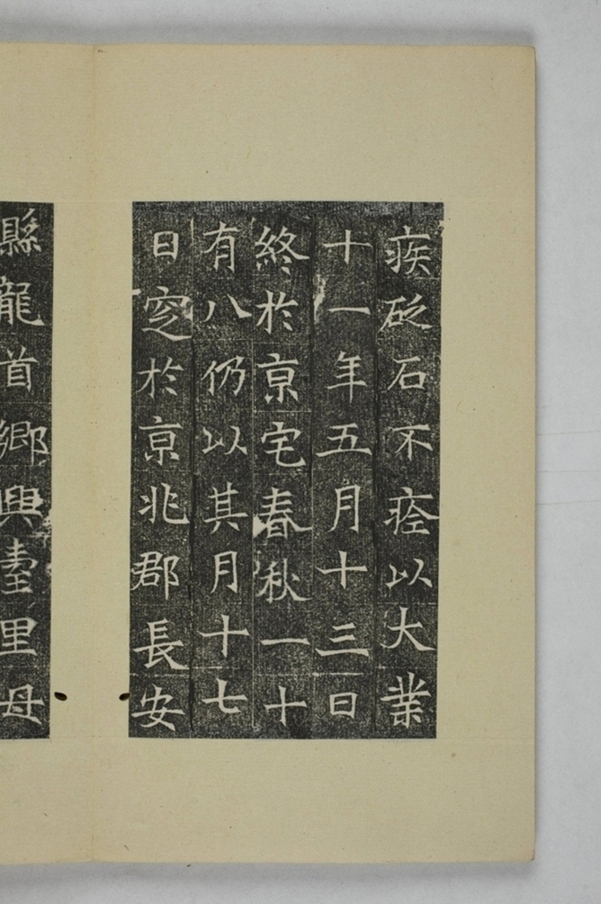 疾砭石不痊以大業
十一年五月十三日
終於京宅春秋一十
有八仍以其月十七
日窆於京兆郡長安
縣龍首鄉興臺里母